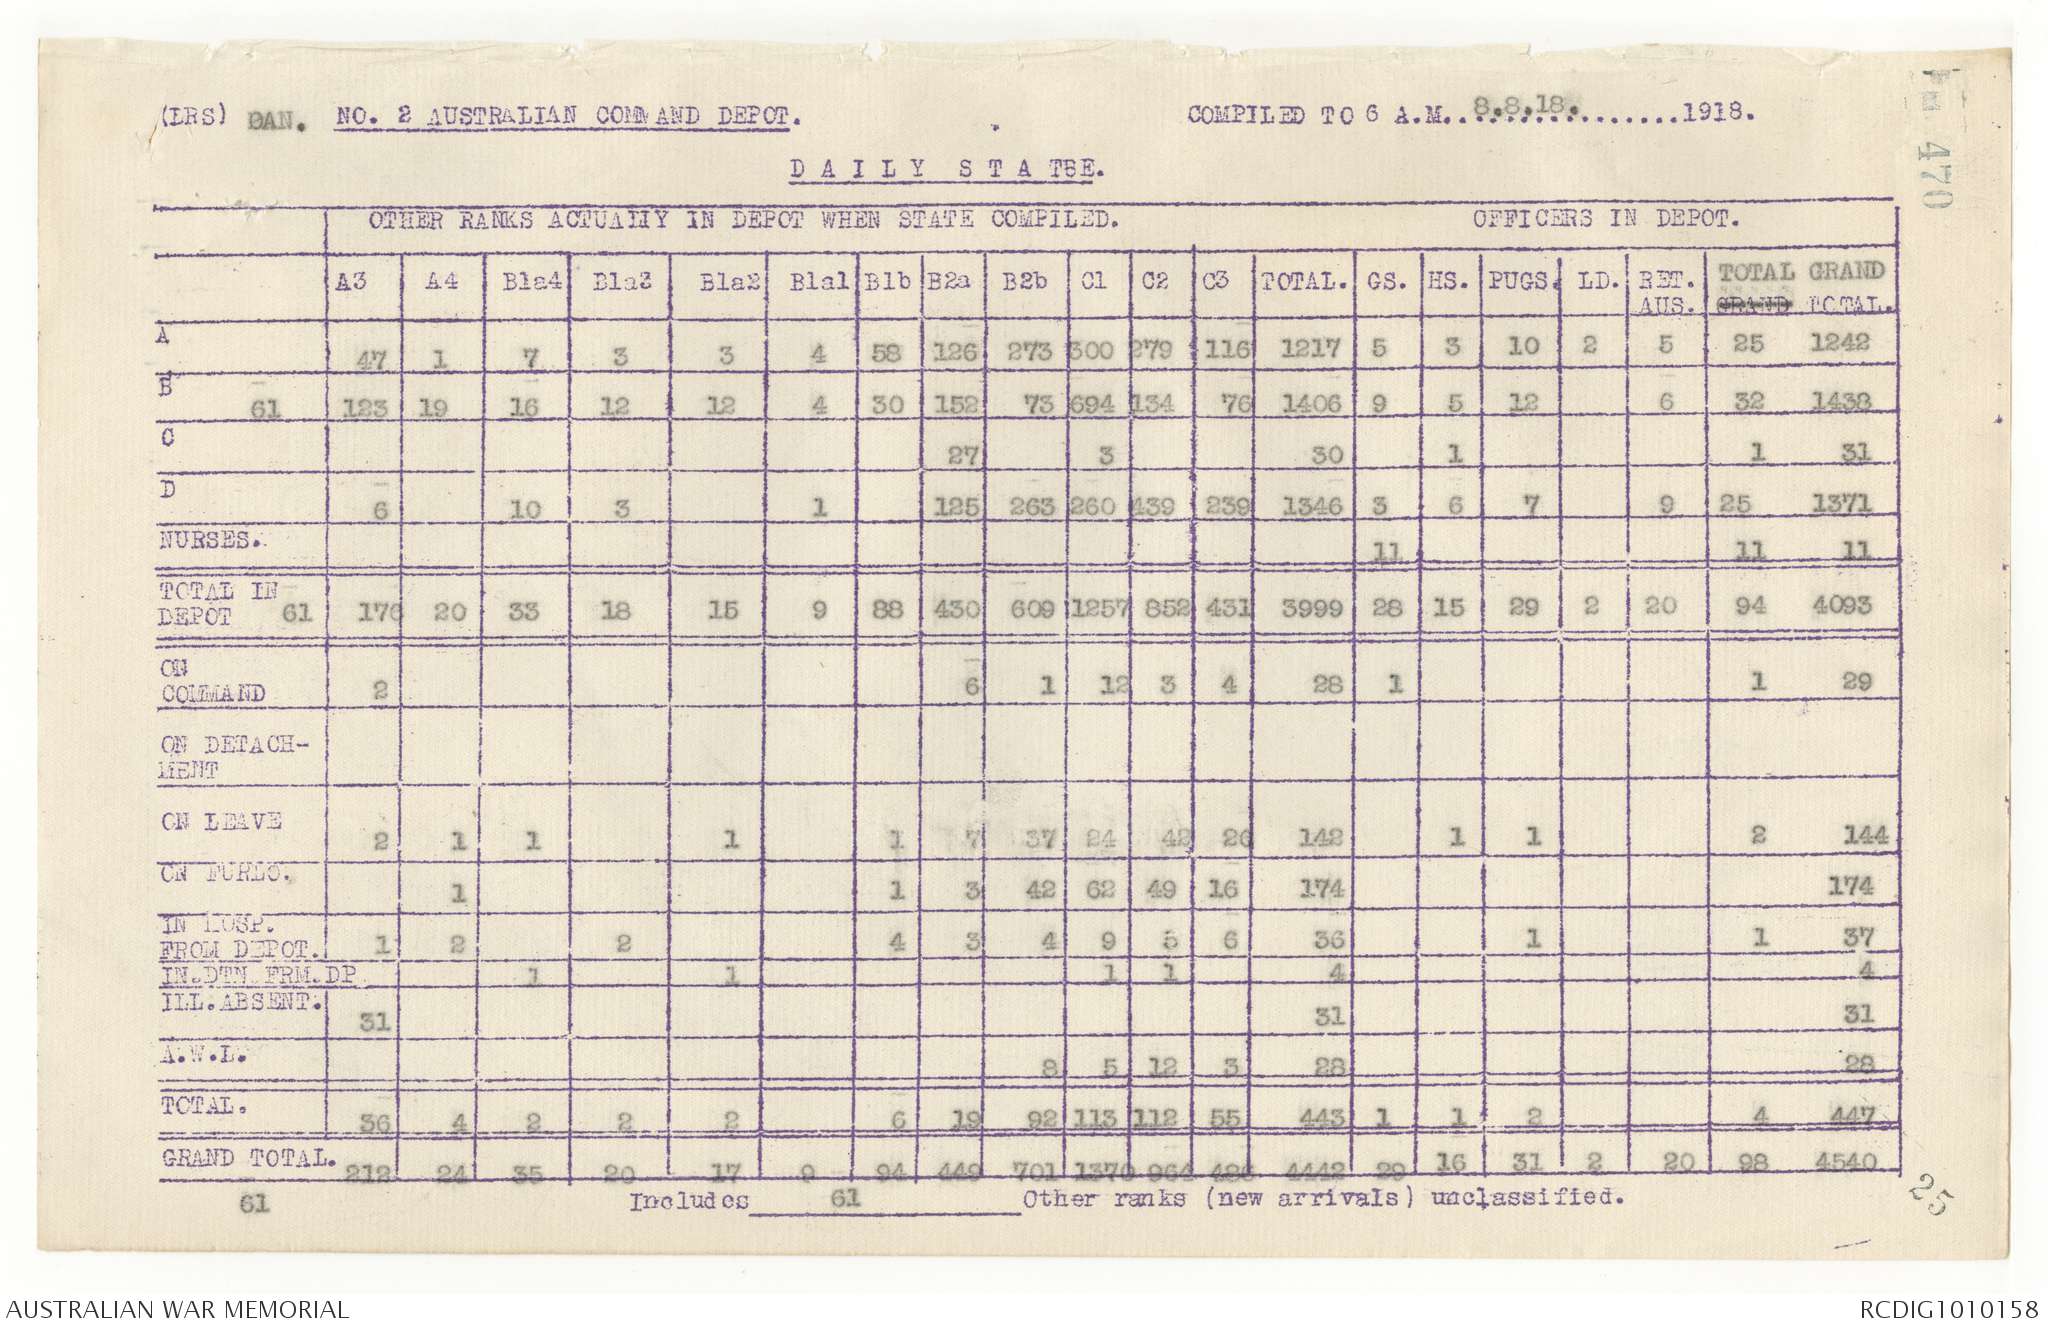 (LRS) DAN. NO. 2 AUSTRALIAN COMMAND DEPOT. COMPILED TO 6 A.M. 8.8.18. 1918.
470
D A I L Y S T A TBE.
OTHER RANKS ACTUALLY IN DEPOT WHEN STATE COMPILED. OFFICERS IN DEPOT.
A3 A4 B1a4 B1a3 B1a2 B1a1 B1b B2a B2b C1 C2 C3 TOTAL. GS. HS. PUGS. LD. RET. AUS. TOTAL GRAND
GRAND TOTAL.
A 47 1 7 3 3 4 58 126 273 300 279 116 1217 5 3 10 2 5 25 1242
B 61 123 19 16 12 12 4 30 152 73 694 134 76 1406 9 5 12 6 32 1438
C 27 3 30 1 1 31
D 6 10 3 1 125 263 260 439 239 1346 3 6 7 9 25 1371
NURSES. 11 11 11
TOTAL IN
DEPOT 61 176 20 33 18 15 9 88 430 609 1257 852 431 3999 28 15 29 2 20 94 4093
ON
COMMAND 2 6 1 12 3 4 28 1 1 29
ON DETACH-
MENT
ON LEAVE 2 1 1 1 1 7 37 24 42 26 142 1 1 2 144
ON FURLO. 1 1 3 42 62 49 16 174 174
IN HOSP.
FROM DEPOT. 1 2 2 4 3 4 9 5 6 36 1 1 37
IN.DTN.FRM.DP 1 1 1 1 4 4
ILL.ABSENT. 31 31 31
A.W.L. 8 5 12 3 28 28
TOTAL. 36 4 2 2 2 6 19 92 113 112 55 443 1 1 2 4 447
GRAND TOTAL. 212 24 35 20 17 9 94 449 701 1370 964 486 4442 29 16 31 2 20 98 4540
61 Includes 61 Other ranks (new arrivals) unclassified.
25
AUSTRALIAN WAR MEMORIAL RCDIG1010158